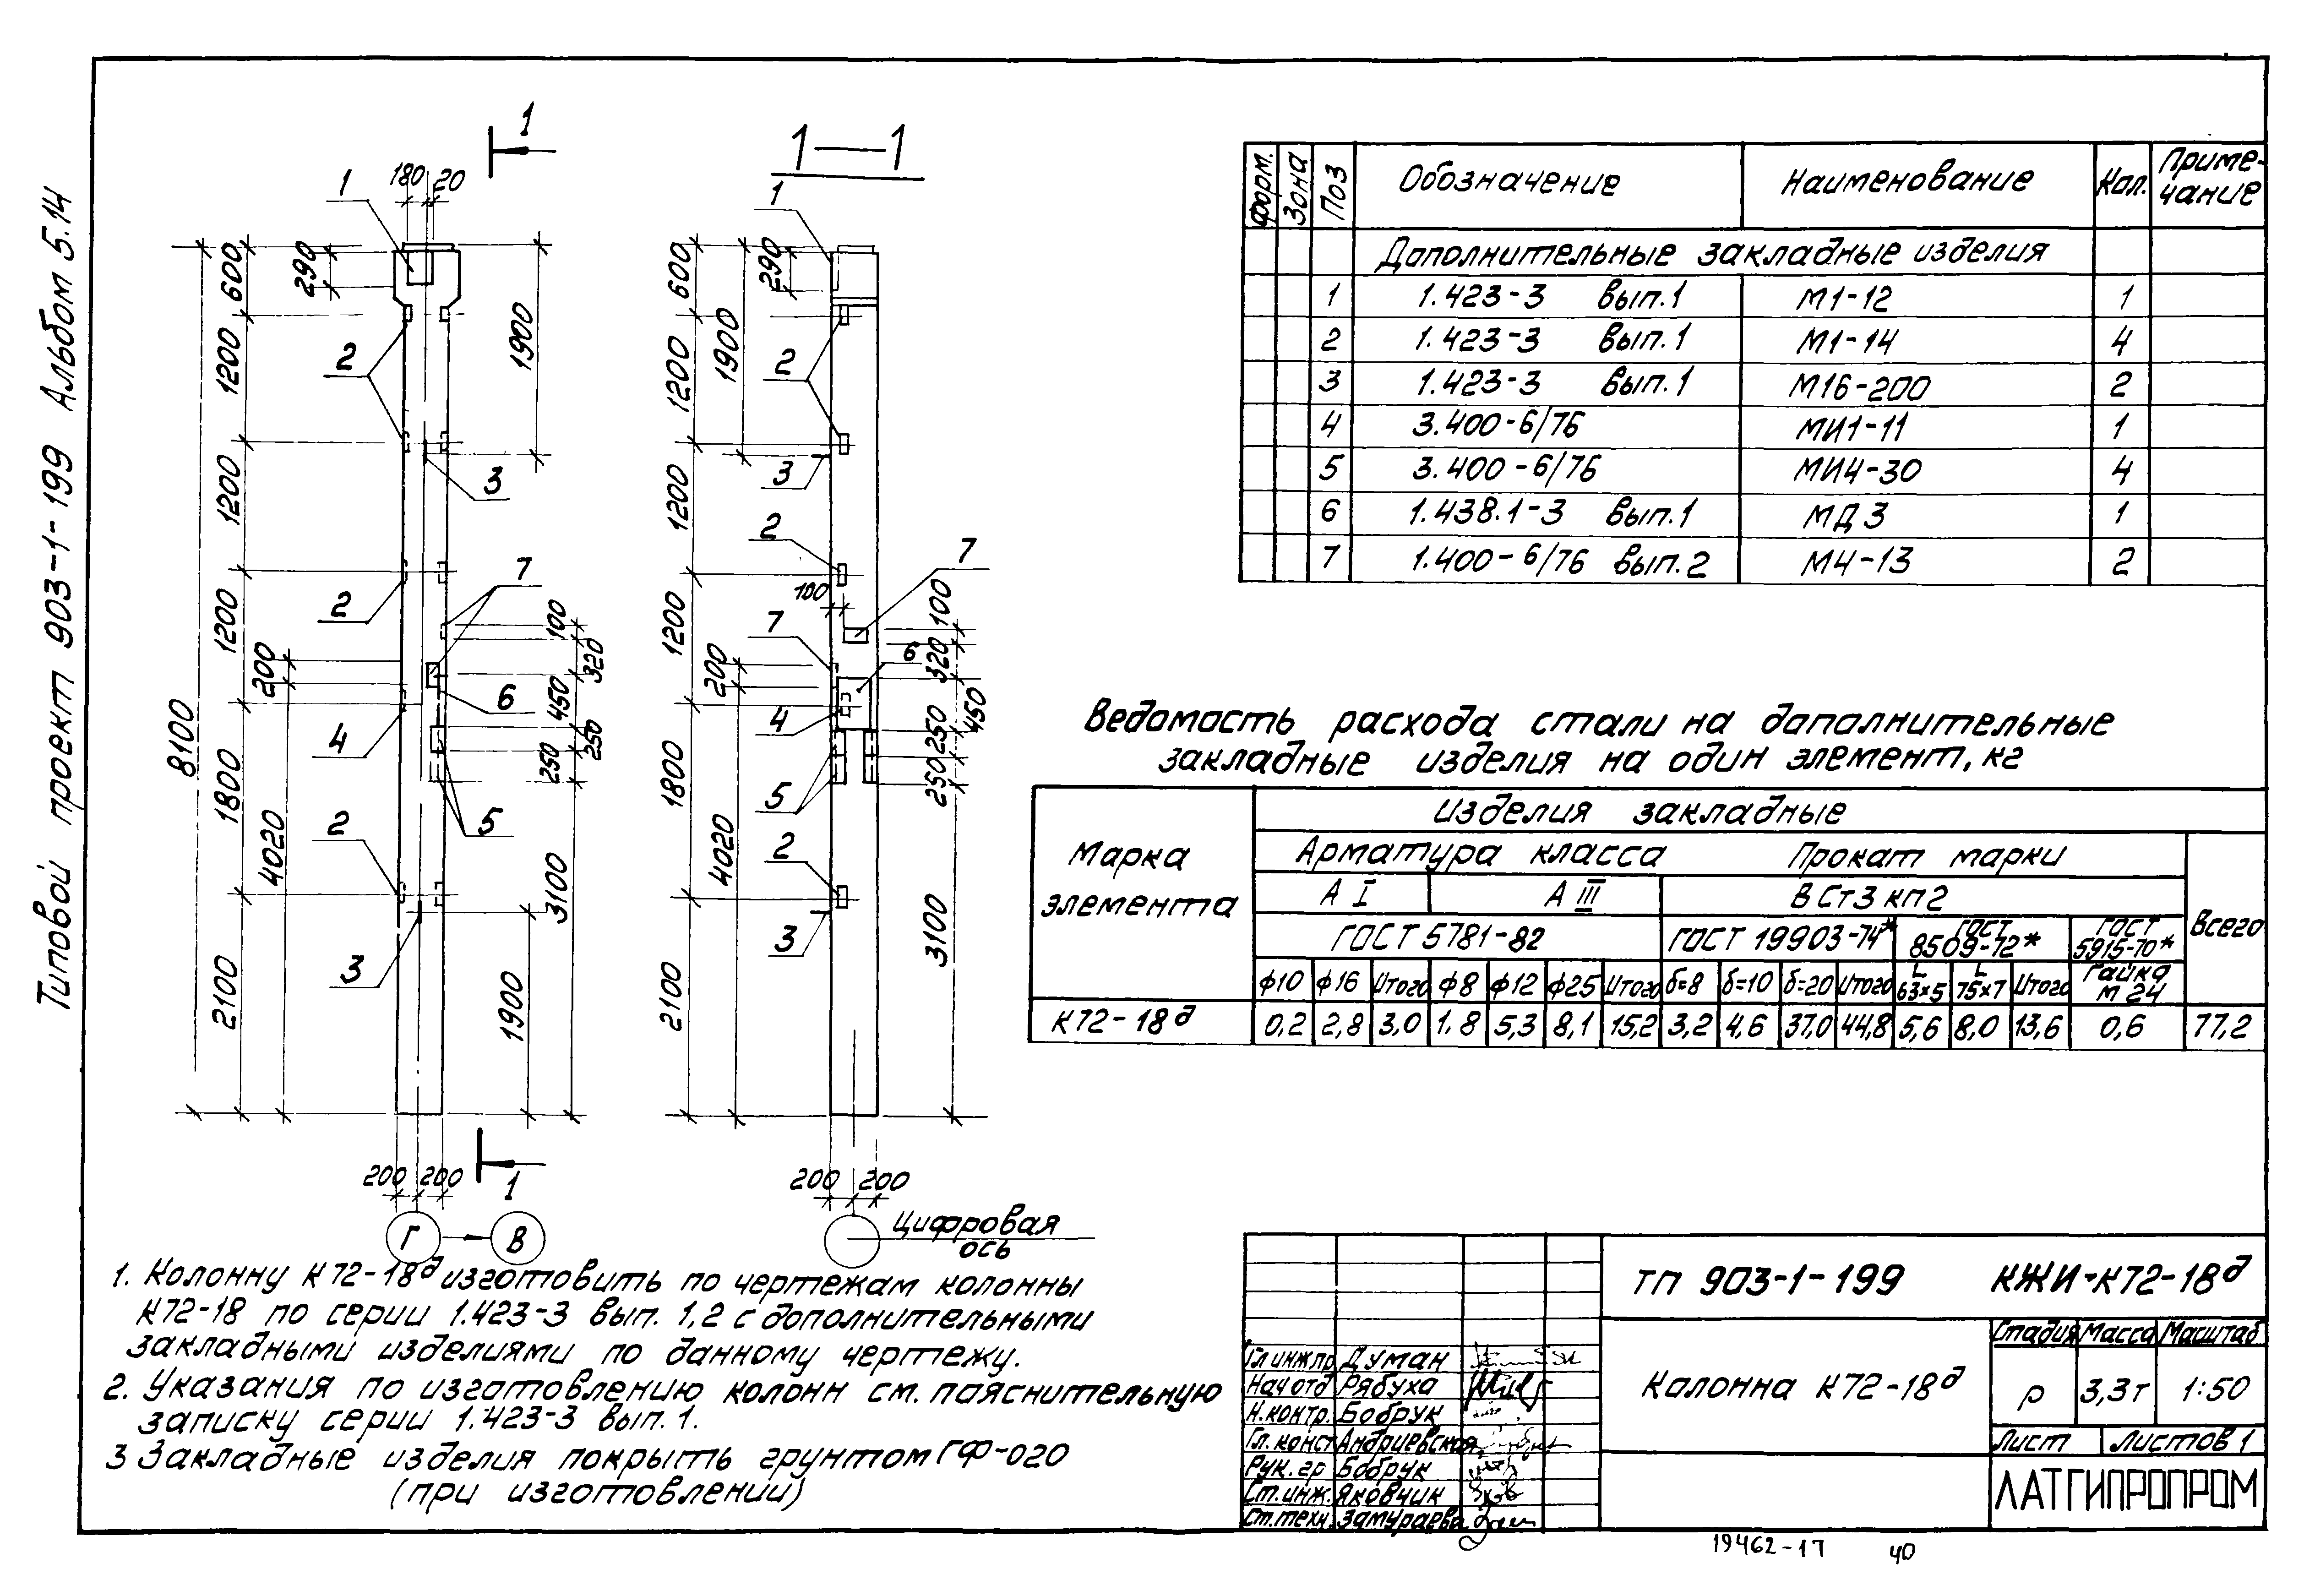 Типовой проект 903-1-199 Альбом 5.14
1
180 20
1
290
600
1200
1200
1200
1800
2100
8100
200
4020
1900
2
3
2
7
100
320
450
250
250
6
4
5
2
3
3100
1900
200 200
1
Г В
1—1
1
290
600
1900
1200
1200
1200
1800
2100
2
3
2
7
100
100
7
200
6
320
450
4
250
250
5
4020
2
3
3100
200 200
Цифровая
ось
Форм. Зона Поз Обозначение Наименование Кол. Приме-
чание
Дополнительные закладные изделия
1 1.423-3 вып.1 М1-12 1
2 1.423-3 вып.1 М1-14 4
3 1.423-3 вып.1 М16-200 2
4 3.400-6/76 МИ1-11 1
5 3.400-6/76 МИ4-30 4
6 1.438.1-3 вып.1 МД3 1
7 1.400-6/76 вып.2 М4-13 2
Ведомость расхода стали на дополнительные
закладные изделия на один элемент, кг
Марка элемента
Изделия закладные
Арматура класса Прокат марки Всего
А I А III ВСт3кп2
ГОСТ 5781-82 ГОСТ 19903-74* ГОСТ 8509-72* ГОСТ 5915-70*
ф10 ф16 Итого ф8 ф12 ф25 Итого δ=8 δ=10 δ=20 Итого L 63×5 L 75×7 Итого Гайка М24
К72-18д 0,2 2,8 3,0 1,8 5,3 8,1 15,2 3,2 4,6 37,0 44,8 5,6 8,0 13,6 0,6 77,2
1. Колонну К72-18д изготовить по чертежам колонны
К72-18 по серии 1.423-3 вып. 1,2 с дополнительными
закладными изделиями по данному чертежу.
2. Указания по изготовлению колонн см. пояснительную
записку серии 1.423-3 вып. 1.
3 Закладные изделия покрыть грунтом ГФ-020
(при изготовлении)
ТП 903-1-199 КЖИ-К72-18д
Гл инж пр Думан
Нач отд Рябуха
Н.контр. Бобрук
Гл. конст Андриевская
Рук. гр Бобрук
Ст. инж. Яковчик
Ст.техн. Замураева
Колонна К72-18д
Стадия Масса Масштаб
Р 3,3т 1:50
Лист Листов 1
ЛАТГИПРОПРОМ
19462-17 40